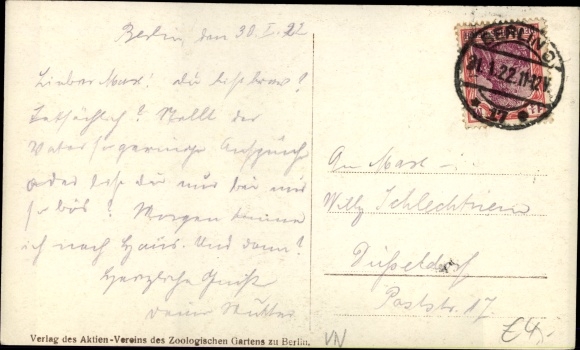 Berlin, den 30.I.22
Lieber Max! Du bist brav?
Tatsächlich? Stellt der
Vater so geringe Ansprüche
oder bist du nur bei mir
so bös? Morgen komme
ich nach Haus. Und dann?
Herzliche Grüße
deine Mutter
Verlag des Aktien-Vereins des Zoologischen Gartens zu Berlin.
BERLIN O
31.1.22.11-12V.
* 17 *
An Max
Willy Schlechtriem
Düsseldorf
Poststr. 17.